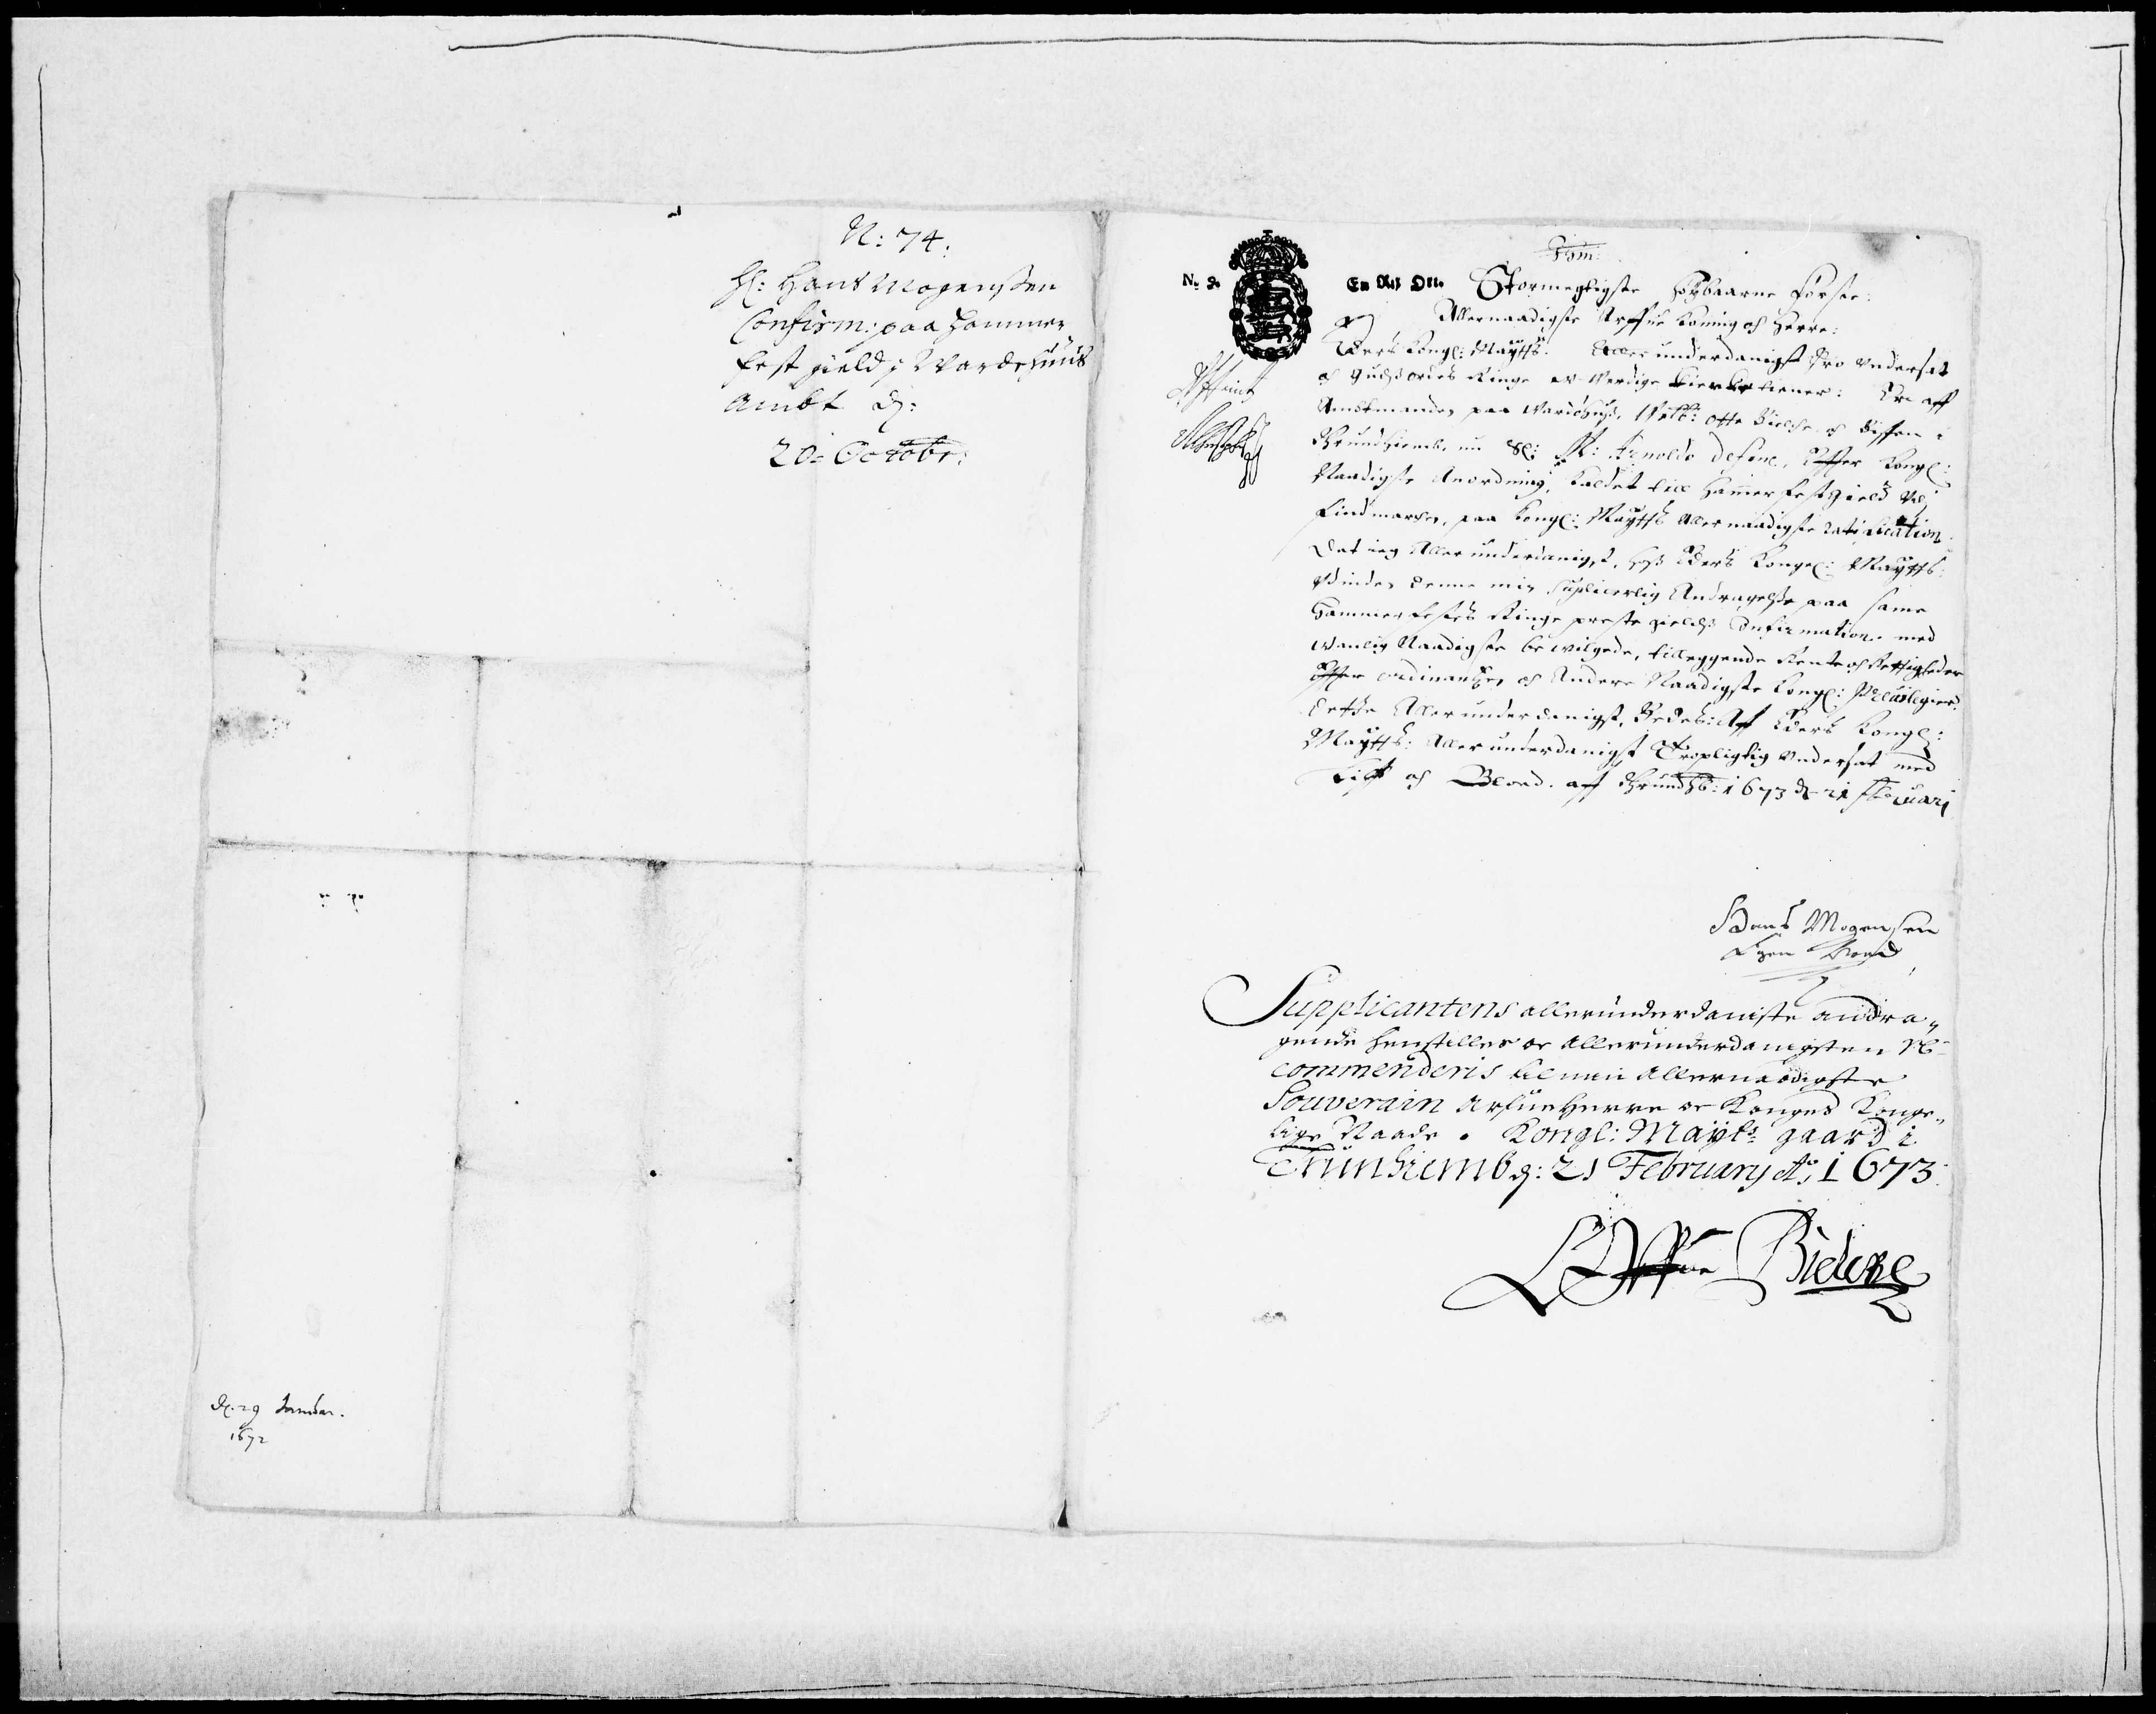 N: 74.
H: Hans Mogenssen
Confirm: paa Hammer
fest gield j Wardehuus
Ambt d:
20 = Octobr:
d. 29 Januar.
1672
N: 2.
En Rix Ort.
Stormegtigste Høybaarne Første:
Allernaadigste Arffue Koning och Herre:
Eders Kongl: Maytts. Allerunderdanigst Tro Undersat
och Gudsz ordes Ringe u-verdige Kierke tiener: Er aff
Ambtmanden paa Wardøhusz, Welb: Otte Bielche och Bispen i
Trundhiemb, nu Sl: M: Arnoldo Define, Effter Kongl:
Naadigste Anordning, Kaldet till Hammerfest gield udj
Findmarchen, paa Kongl: Maytts Allernaadigste ratification
Dat ieg Allerunderdanigst, hosz Eders Kongel: Maytts:
Vinder denne min Suplicerlig Andragelsze paa same
Hammerfestes Ringe preste gieldsz Confirmation. med
wanlig Naadigste bewilgede, tilleggende Rente och Rettigheder
Effter ordinantzen och Andere Naadigste Kongl: Preuilegier.
Dette Allerunderdanigst, Bedes: Aff Eders Kongl:
Maytts: Allerunderdanigst Tropligtig Undersat med
Liff och Bloed. aff Trundhb: 1673 d 21 Februarj
Hans Mogensen
Egen Haand
Supplicantens allerunderdaniste andra=
gende henstilles oc allerunderdanigsten re=
commenderis til min allernaadigste
Souverain Arfue Herre oc Konges Konge=
lige Naade. Kongl: Mayts gaard i
Trunhiemb d: 21 February Ao 1673.
Otte Bielcke